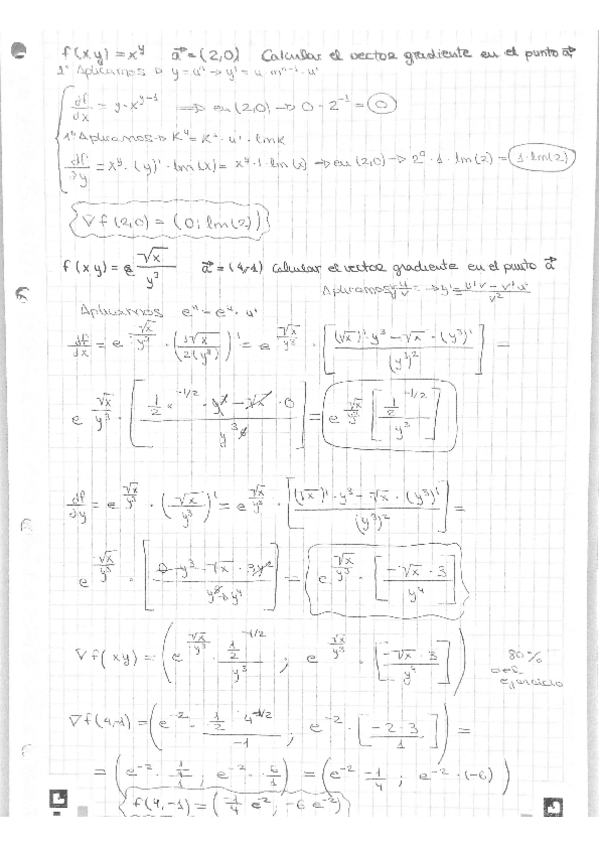 f(x y) = x^y   a⃗ = (2,0)   Calcular el vector gradiente en el punto a⃗
1º Aplicamos → y = u^n → y' = u · m^n-1 · u'
df/dx = y · x^y-1 ⇒ en (2,0) → 0 · 2^-1 = 0
1º Aplicamos → K^u = K^u · u' · lmk
df/∂y = x^y · (y)' · lm(x) = x^y · 1 · lm(x) → en (2,0) → 2^0 · 1 · lm(2) = 1·lm(2)
∇f(2,0) = (0; lm(2))
f(x y) = e^√x/y^3   a⃗ = (4,-1) Calcular el vector gradiente en el punto a⃗
Aplicamos u/v → y' = u'v - v'u / v^2
Aplicamos e^u - e^u · u'
df/dx = e^√x/y^3 · (1√x / 2(y^3))' = e^√x/y^3 · [(√x)' y^3 - √x · (y^3)' / (y^3)^2] =
e^√x/y^3 · [1/2 x^-1/2 · y^3 - √x · 0 / y^3 6] = e^√x/y^3 [1/2^-1/2 / y^3]
df/∂y = e^√x/y^3 · (√x/y^3)' = e^√x/y^3 · [(√x)' · y^3 - √x · (y^3)' / (y^3)^2] =
e^√x/y^3 · [0 - y^3 - √x · 3y^2 / y^6→y^4] = e^√x/y^3 · [-√x · 3 / y^4]
∇f(x y) = (e^√x/y^3 · 1/2^-1/2 / y^3 ; e^√x/y^3 · [-√x · 3 / y^4])
80%
del
ejercicio
∇f(4,-1) = (e^-2 · 1/2 4^-1/2 / -1 ; e^-2 · [-2·3 / 1]) =
= (e^-2 · 1/4 / 1 ; e^-2 · 6/1) = (e^-2 -1/4 ; e^-2 · (-6))
f(4,-1) = (-1/4 e^2 ; -6 e^-2)